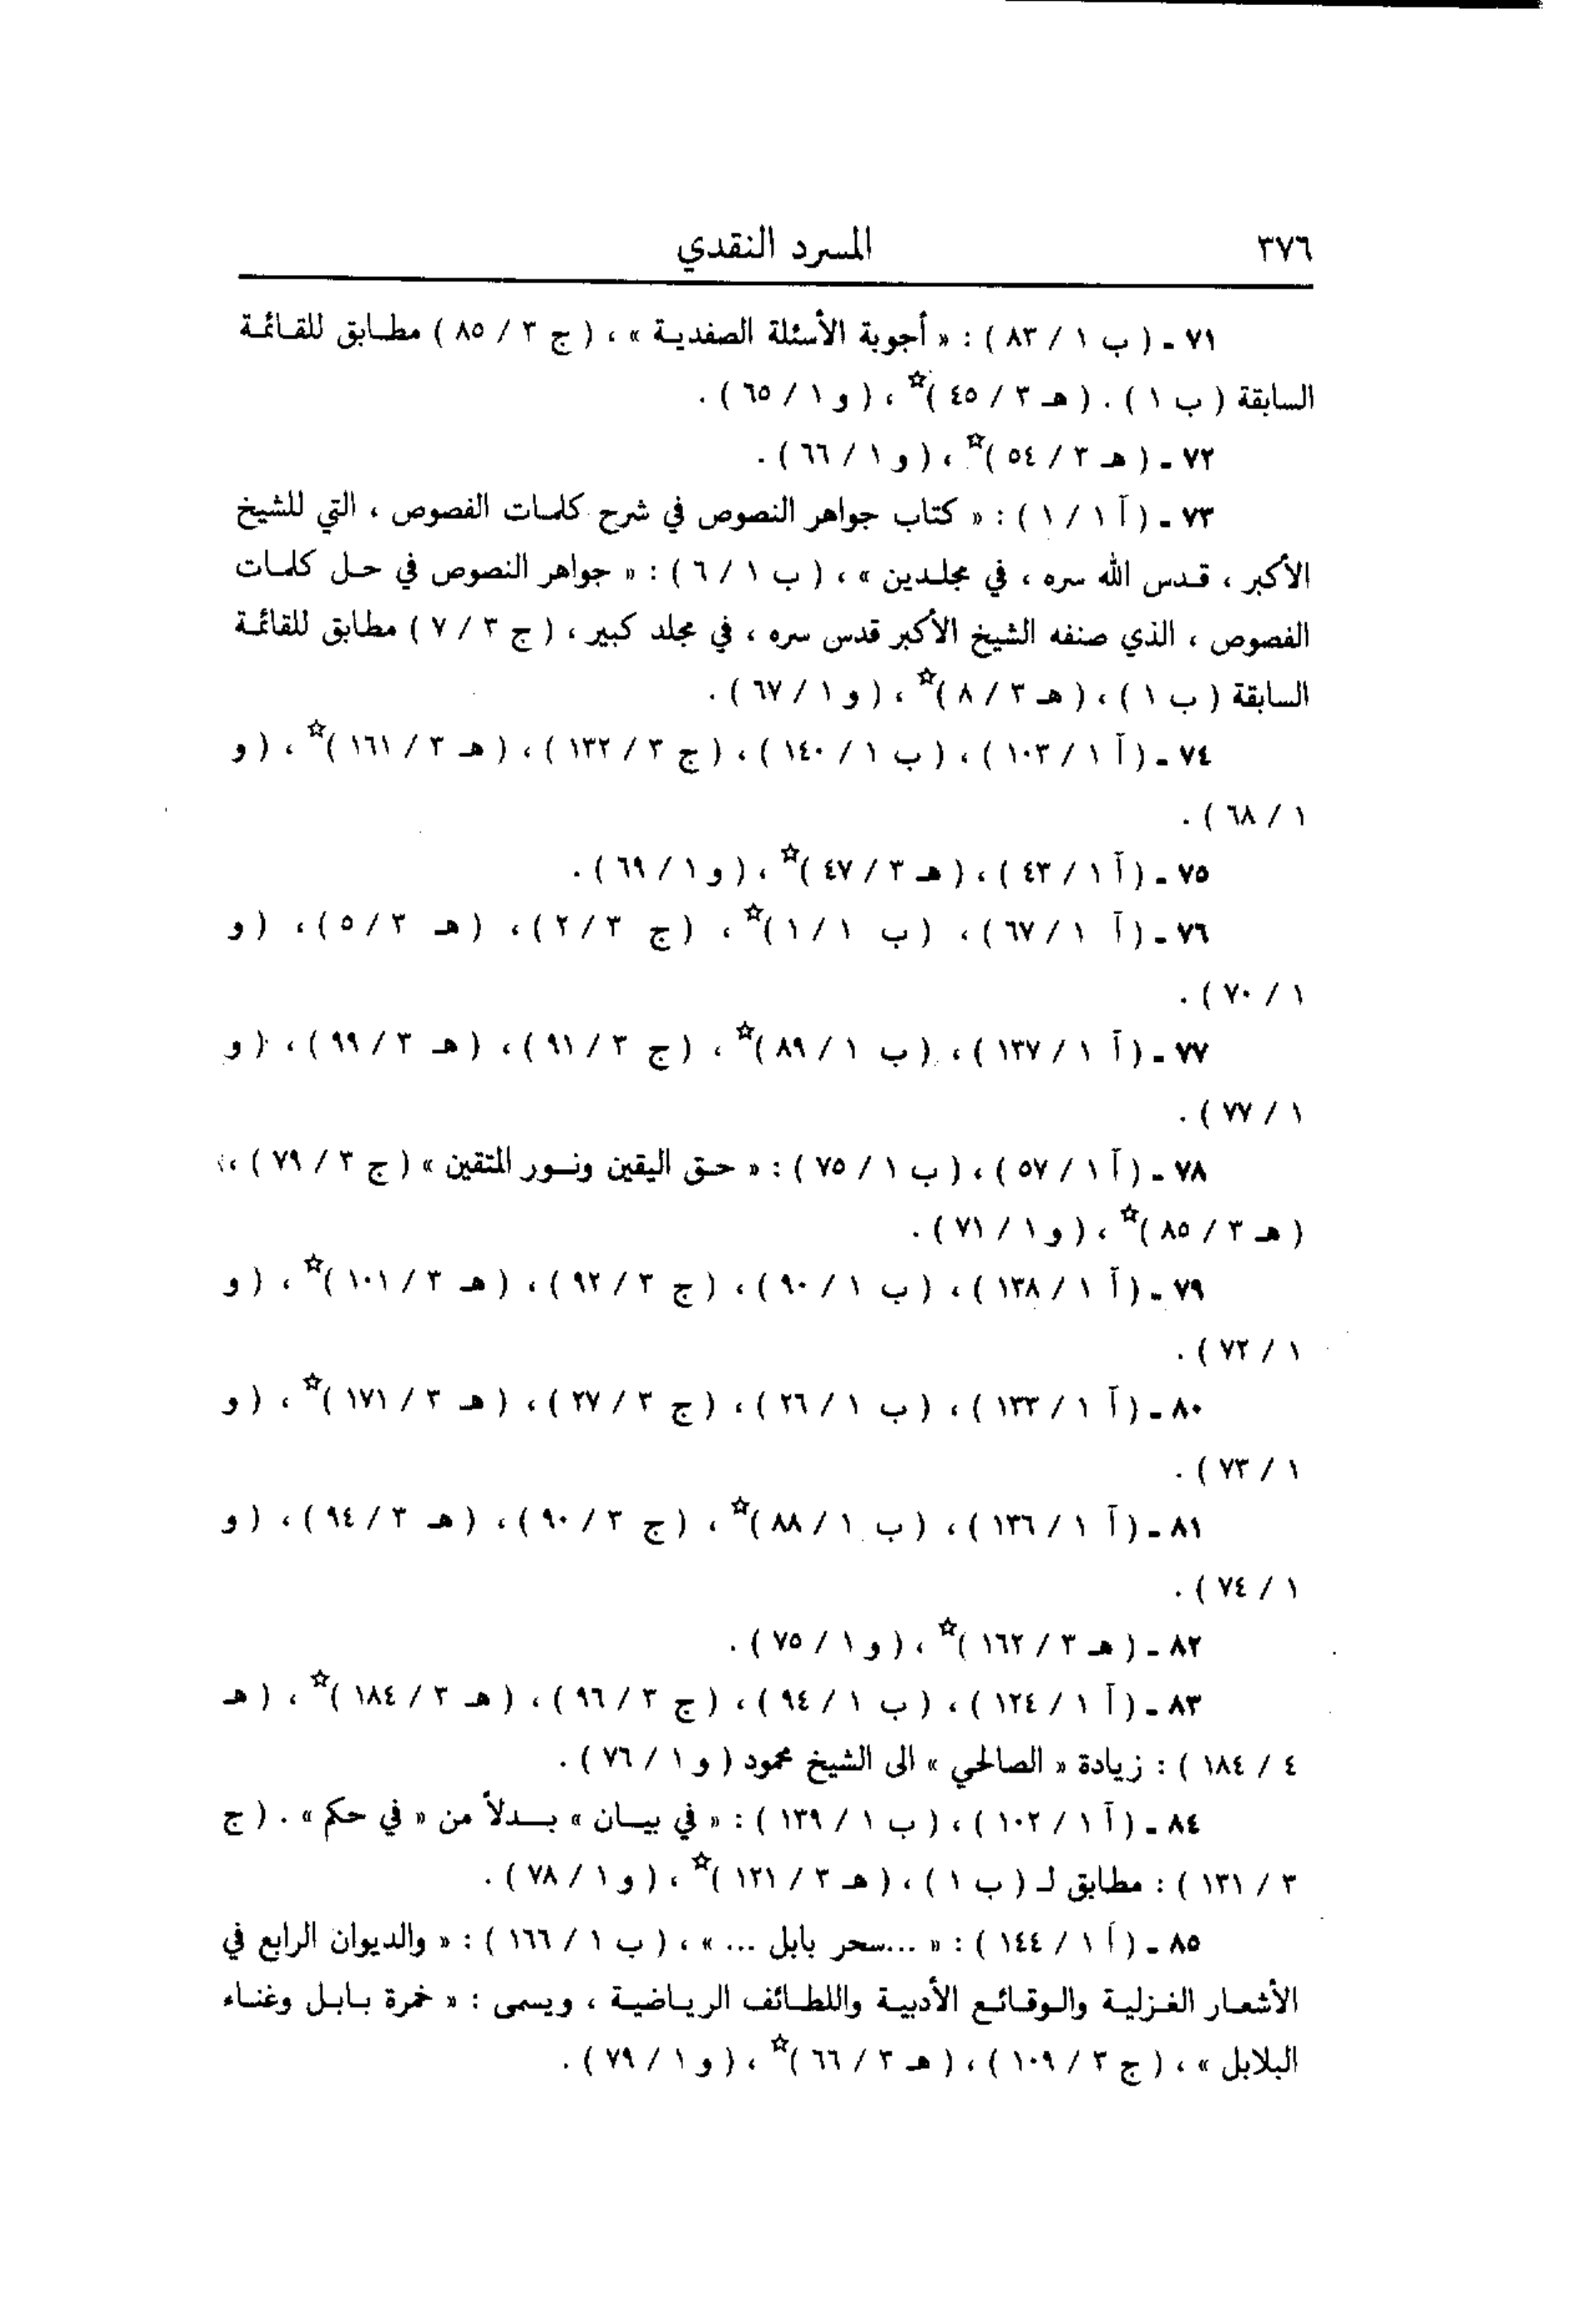 ٣٧٦ المسرد النقدي
٧١ ـ ( ب ١ / ٨٣ ) : « أجوبة الأسئلة الصفدية » ، ( ج ٣ / ٨٥ ) مطابق للقائمة
السابقة ( ب ١ ) . ( هـ ٣ / ٤٥ )☆ ، ( و ١ / ٦٥ ) .
٧٢ ـ ( هـ ٣ / ٥٤ )☆ ، ( و ١ / ٦٦ ) .
٧٣ ـ ( آ ١ / ١ ) : « كتاب جواهر النصوص في شرح كلمات الفصوص ، التي للشيخ
الأكبر ، قدس الله سره ، في مجلدين » ، ( ب ١ / ٦ ) : « جواهر النصوص في حل كلمات
الفصوص ، الذي صنفه الشيخ الأكبر قدس سره ، في مجلد كبير ، ( ج ٣ / ٧ ) مطابق للقائمة
السابقة ( ب ١ ) ، ( هـ ٣ / ٨ )☆ ، ( و ١ / ٦٧ ) .
٧٤ ـ ( آ ١ / ١٠٣ ) ، ( ب ١ / ١٤٠ ) ، ( ج ٣ / ١٣٢ ) ، ( هـ ٣ / ١٦١ )☆ ، ( و
١ / ٦٨ ) .
٧٥ ـ ( آ ١ / ٤٣ ) ، ( هـ ٣ / ٤٧ )☆ ، ( و ١ / ٦٩ ) .
٧٦ ـ ( آ ١ / ٦٧ ) ، ( ب ١ / ١ )☆ ، ( ج ٣ / ٢ ) ، ( هـ ٣ / ٥ ) ، ( و
١ / ٧٠ ) .
٧٧ ـ ( آ ١ / ١٣٧ ) ، ( ب ١ / ٨٩ )☆ ، ( ج ٣ / ٩١ ) ، ( هـ ٣ / ٩٩ ) ، ( و
١ / ٧٧ ) .
٧٨ ـ ( آ ١ / ٥٧ ) ، ( ب ١ / ٧٥ ) : « حق اليقين ونور المتقين » ( ج ٣ / ٧٩ ) ،
( هـ ٣ / ٨٥ )☆ ، ( و ١ / ٧١ ) .
٧٩ ـ ( آ ١ / ١٣٨ ) ، ( ب ١ / ٩٠ ) ، ( ج ٣ / ٩٢ ) ، ( هـ ٣ / ١٠١ )☆ ، ( و
١ / ٧٢ ) .
٨٠ ـ ( آ ١ / ١٣٣ ) ، ( ب ١ / ٢٦ ) ، ( ج ٣ / ٢٧ ) ، ( هـ ٣ / ١٧١ )☆ ، ( و
١ / ٧٣ ) .
٨١ ـ ( آ ١ / ١٣٦ ) ، ( ب ١ / ٨٨ )☆ ، ( ج ٣ / ٩٠ ) ، ( هـ ٣ / ٩٤ ) ، ( و
١ / ٧٤ ) .
٨٢ ـ ( هـ ٣ / ١٦٢ )☆ ، ( و ١ / ٧٥ ) .
٨٣ ـ ( آ ١ / ١٢٤ ) ، ( ب ١ / ٩٤ ) ، ( ج ٣ / ٩٦ ) ، ( هـ ٣ / ١٨٤ )☆ ، ( هـ
٤ / ١٨٤ ) : زيادة « الصالحي » الى الشيخ محمود ( و ١ / ٧٦ ) .
٨٤ ـ ( آ ١ / ١٠٢ ) ، ( ب ١ / ١٣٩ ) : « في بيان » بدلاً من « في حكم » . ( ج
٣ / ١٣١ ) : مطابق لـ ( ب ١ ) ، ( هـ ٣ / ١٢١ )☆ ، ( و ١ / ٧٨ ) .
٨٥ ـ ( آ ١ / ١٤٤ ) : « ...سحر بابل ... » ، ( ب ١ / ١٦٦ ) : « والديوان الرابع في
الأشعار الغزلية والوقائع الأدبية واللطائف الرياضية ، ويسمى : « خمرة بابل وغناء
البلابل » ، ( ج ٣ / ١٠٩ ) ، ( هـ ٣ / ٦٦ )☆ ، ( و ١ / ٧٩ ) .